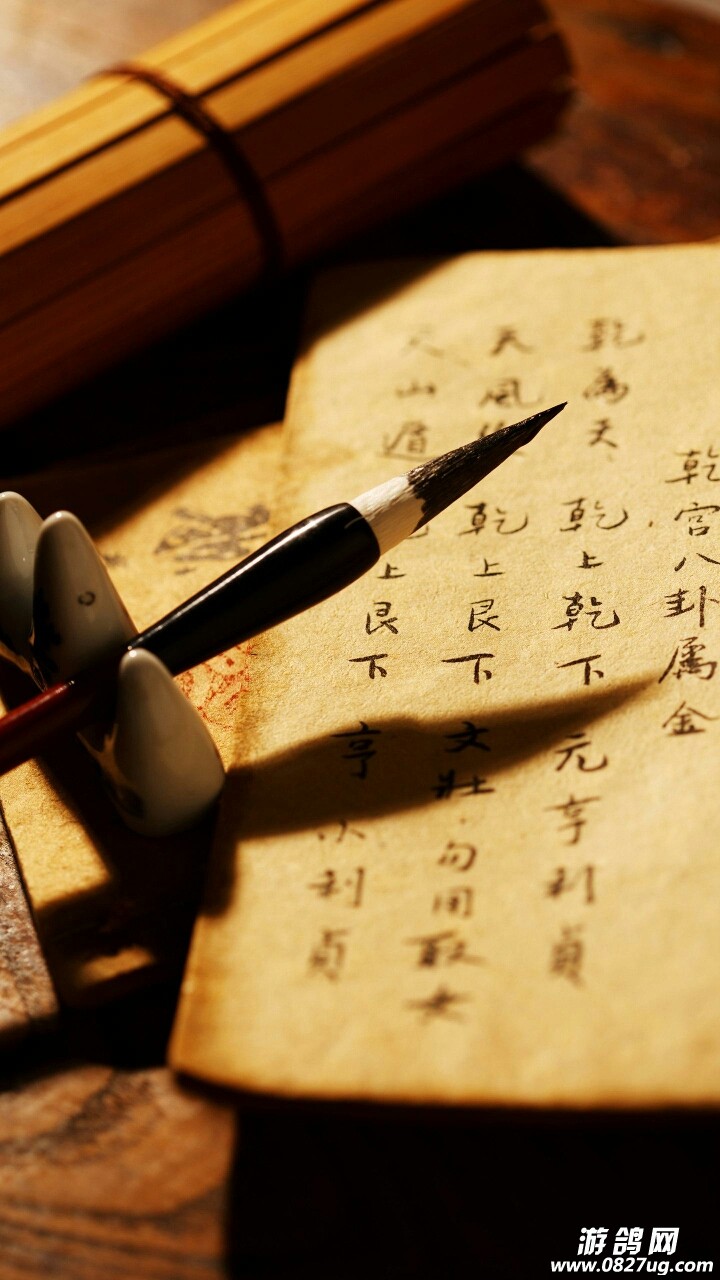 乾宫八卦属金
乾為天 乾上乾下 元亨利貞
天風 乾上艮下 文壯勿用取女
天山遁 上艮下 亨小利貞
游鸽网
www.0827ug.com